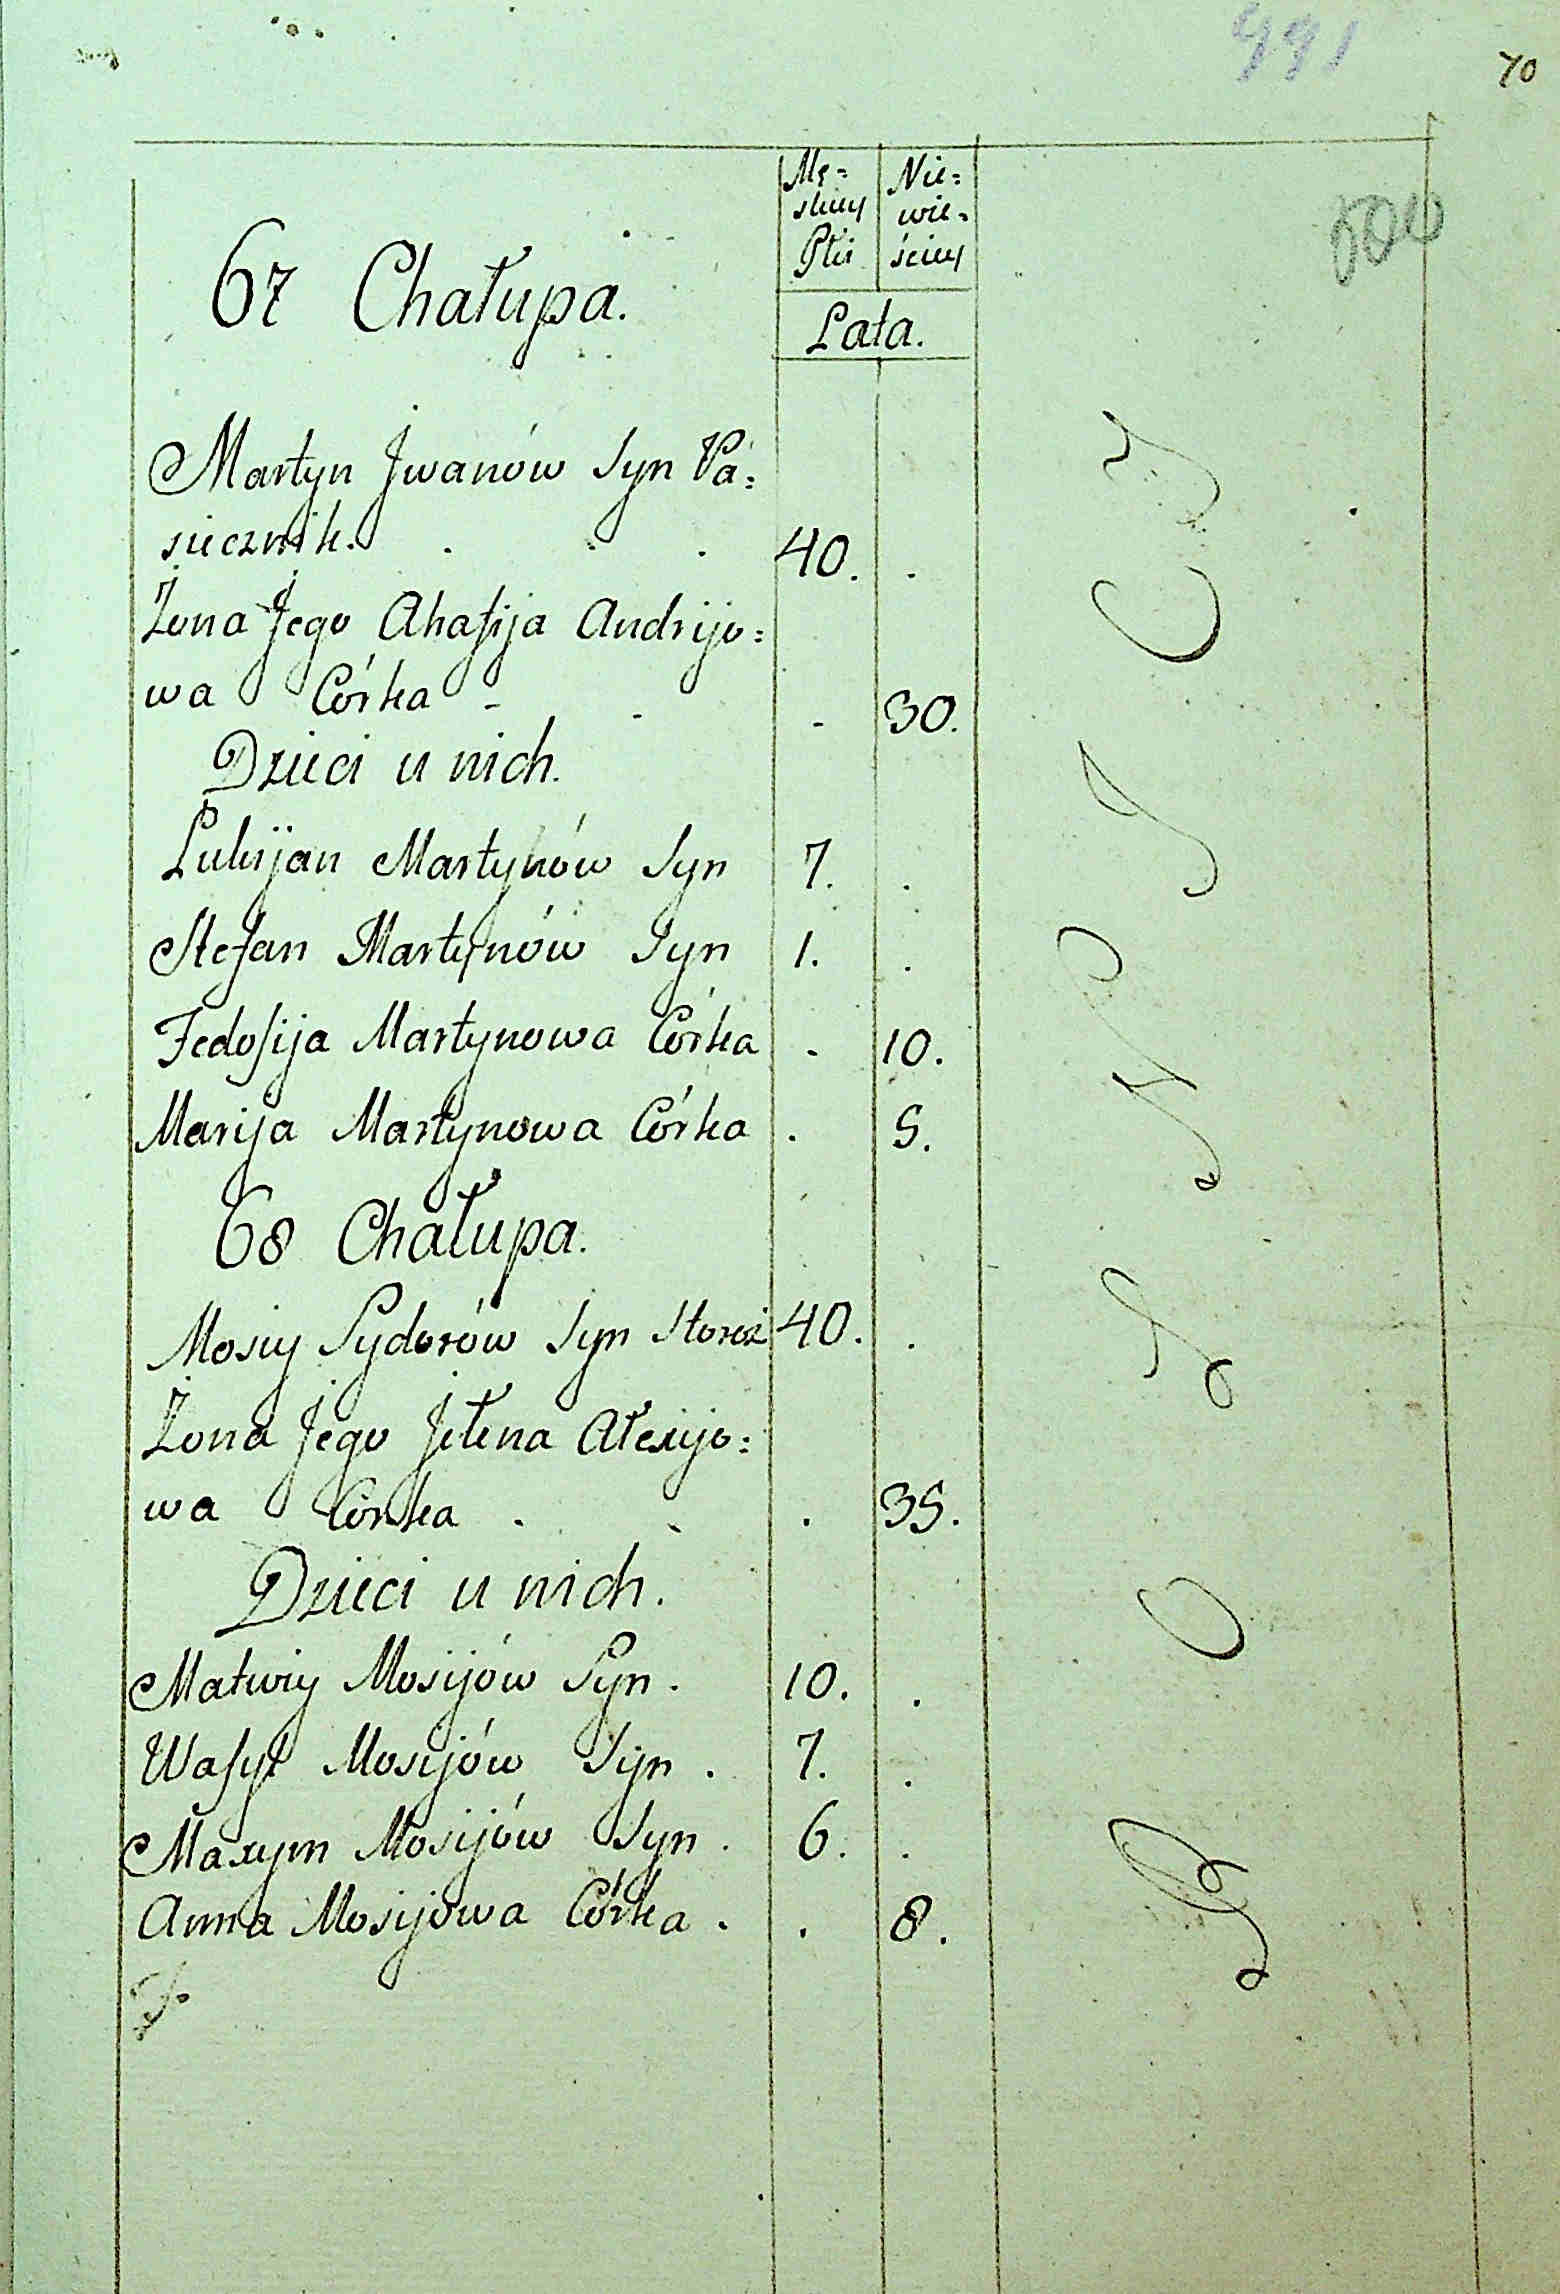 991
70
Mę=
skiey
Płci
Nie=
wie=
ściey
67 Chałupa.
Lata.
Martyn Jwanów Syn Pa=
siecznik. 40.
Żona Jego Ahafija Andrijo=
wa Córka - 30.
Dzieci u nich.
Lukijan Martynów Syn 7.
Stefan Martynów Syn 1.
Fedosija Martynowa Córka 10.
Marija Martynowa Córka 5.
68 Chałupa.
Mosiy Sydorów Syn Storoż 40.
Żona Jego Jełena Ałexijo=
wa Córka 35.
Dzieci u nich.
Matwiy Mosijów Syn. 10.
Wasyl Mosijów Syn. 7.
Maxym Mosijów Syn. 6.
Anna Mosijowa Córka. 8.